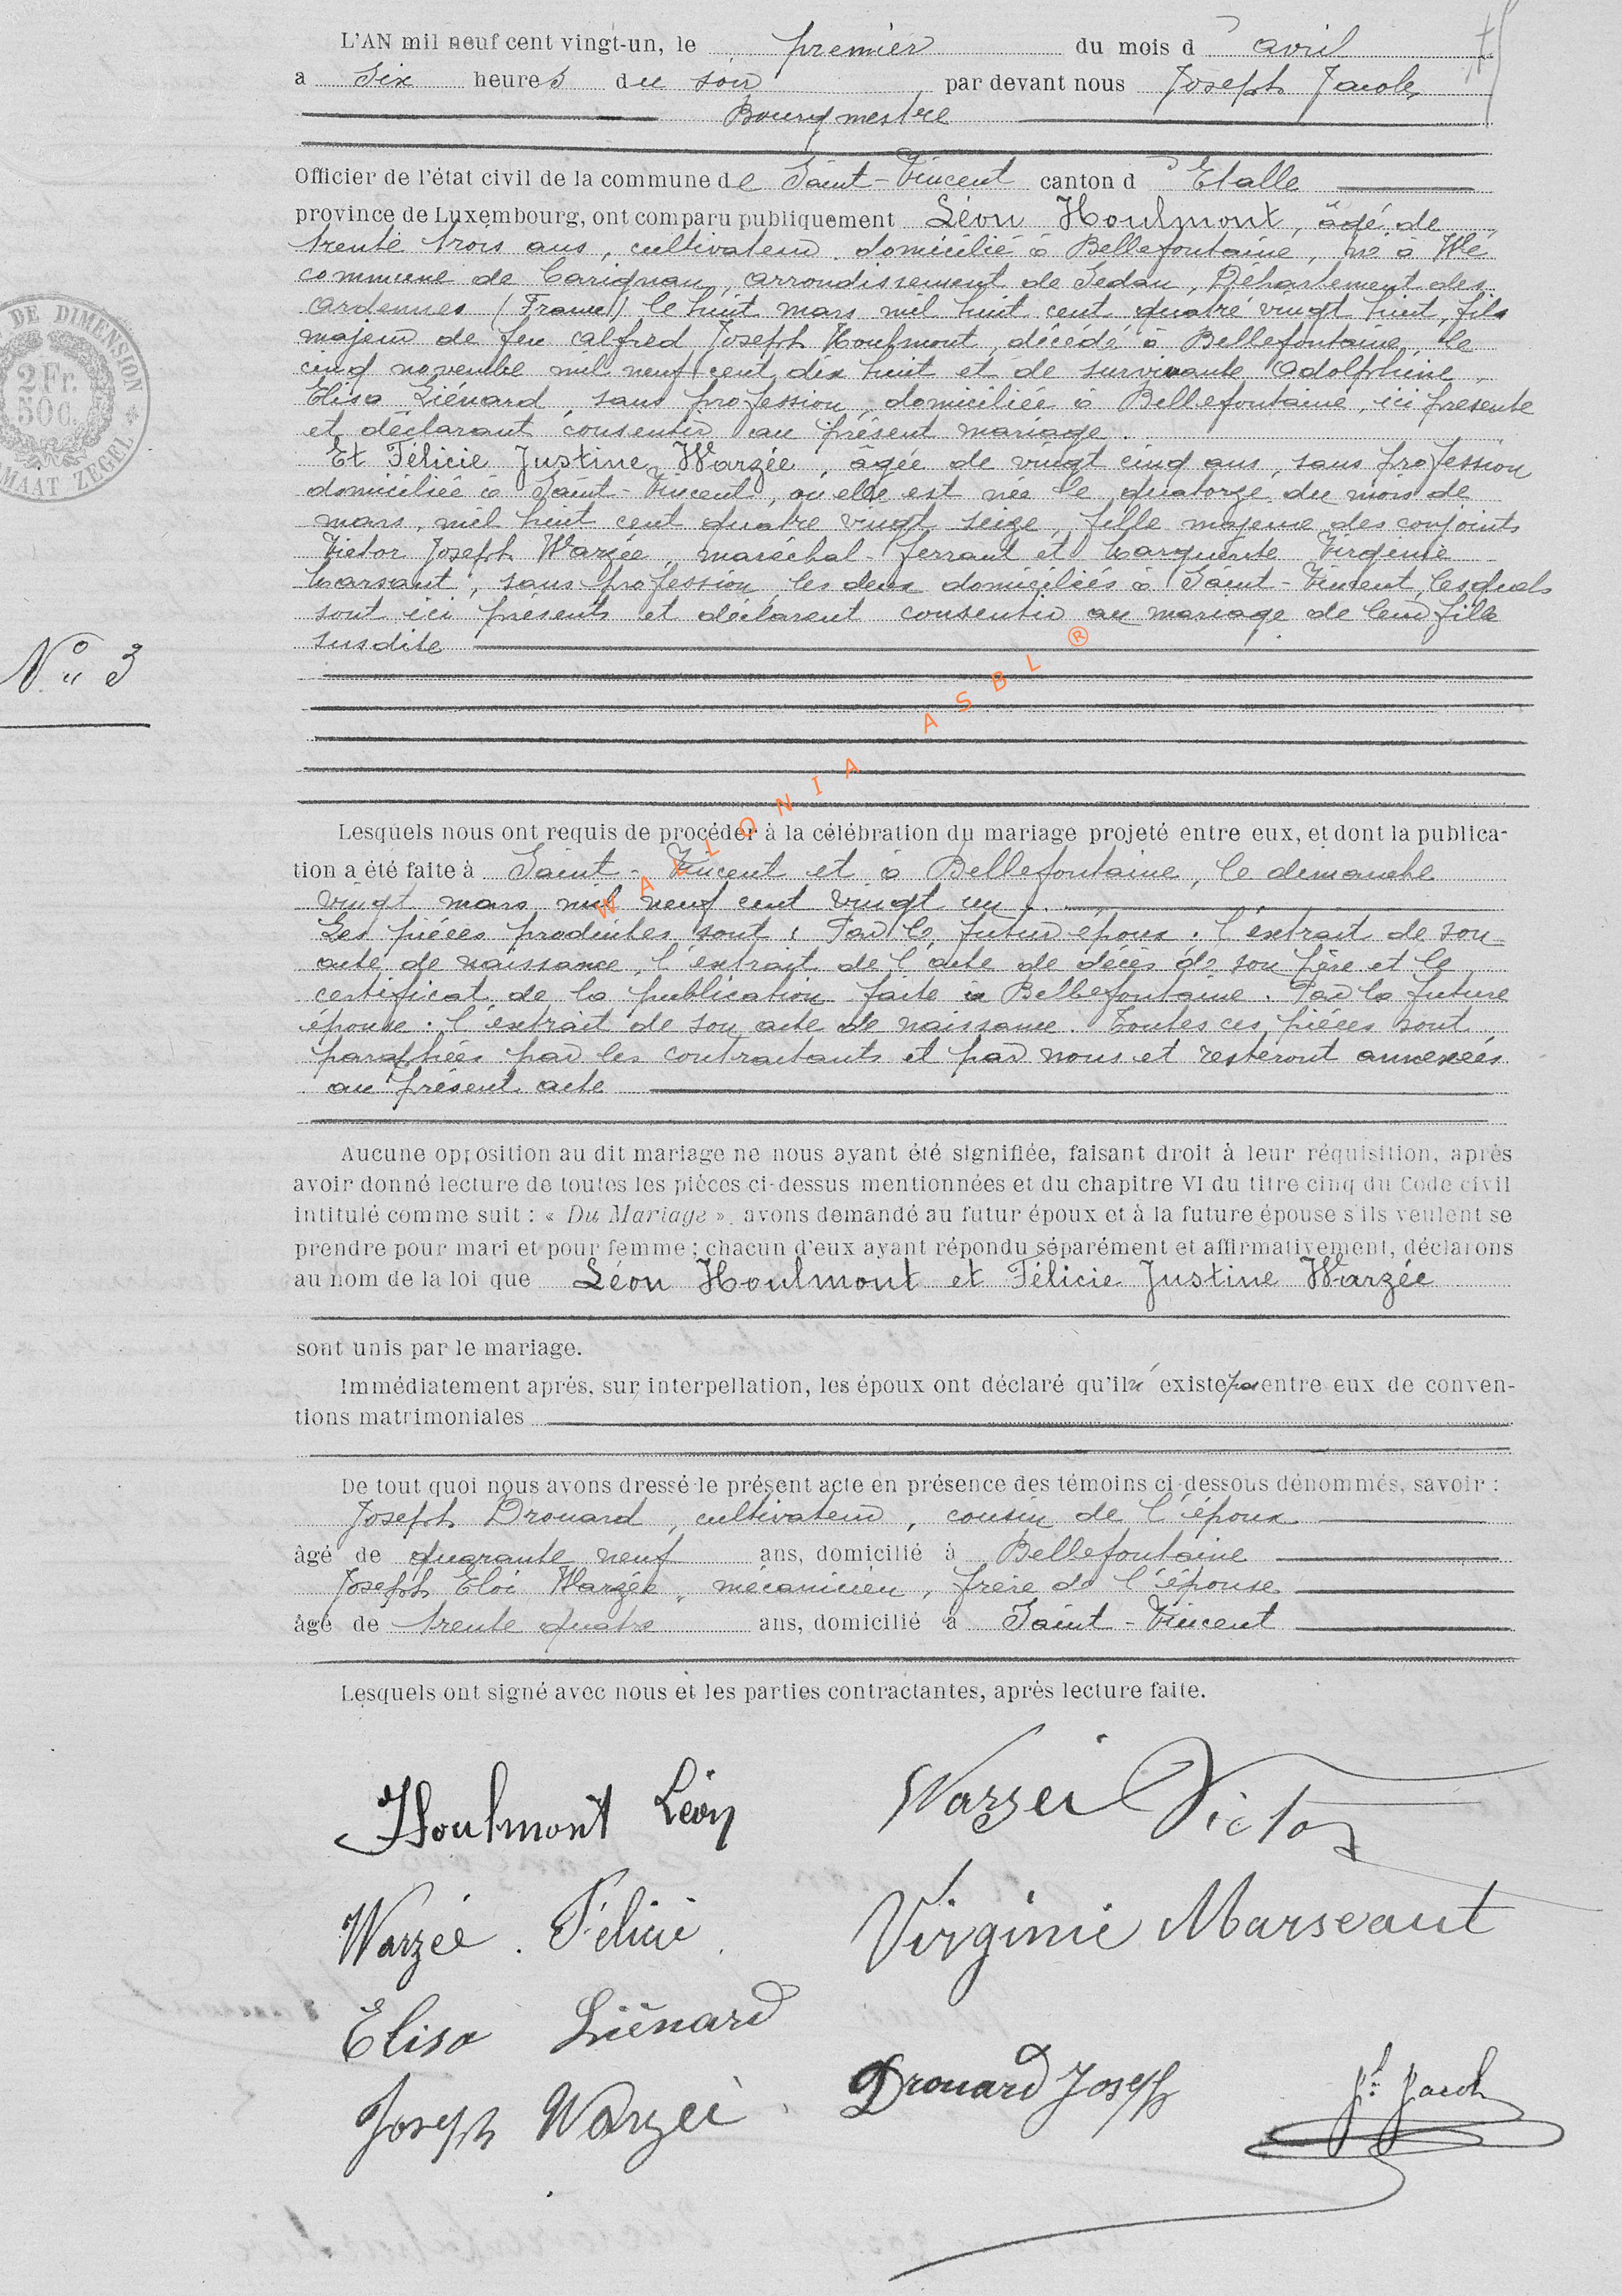 L'AN mil neuf cent vingt-un, le premier du mois d' avril
a six heures du soir par devant nous Joseph Jacob,
Bourgmestre
Officier de l'état civil de la commune de Saint-Vincent canton d' Etalle
province de Luxembourg, ont comparu publiquement Léon Houlmont, âgé de
trente trois ans, cultivateur domicilié à Bellefontaine, né à Wé
commune de Carignan, arrondissement de Sedan, Département des
Ardennes (France) le huit mars mil huit cent quatre vingt huit, fils
majeur de feu Alfred Joseph Houlmont, décédé à Bellefontaine, le
cinq novembre mil neuf cent dix huit et de survivante Adolphine
Elisa Liénard, sans profession, domiciliée à Bellefontaine, ici présente
et déclarant consentir au présent mariage.
Et Félicie Justine Warzée, âgée de vingt cinq ans, sans profession
domiciliée à Saint-Vincent, où elle est née le quatorze du mois de
mars, mil huit cent quatre vingt seize, fille majeure des conjoints
Victor Joseph Warzée, maréchal-ferrant et Marguerite Virginie
Marsaut, sans profession, les deux domiciliés à Saint-Vincent, lesquels
sont ici présents et déclarent consentir au mariage de leur fille
susdite
DE DIMENSION
2 Fr.
50 c.
MAAT ZEGEL
No 3
WALLONIA ASBL ®
Lesquels nous ont requis de procéder à la célébration du mariage projeté entre eux, et dont la publica-
tion a été faite à Saint-Vincent et à Bellefontaine, le dimanche
vingt mars mil neuf cent vingt un.
Les pièces produites sont : Par le futur époux : l'extrait de son
acte de naissance, l'extrait de l'acte de décès de son père et le
certificat de la publication faite à Bellefontaine. Par la future
épouse : l'extrait de son acte de naissance. Toutes ces pièces sont
paraphées par les contractants et par nous et resteront annexées
au présent acte
Aucune opposition au dit mariage ne nous ayant été signifiée, faisant droit à leur réquisition, après
avoir donné lecture de toutes les pièces ci-dessus mentionnées et du chapitre VI du titre cinq du Code civil
intitulé comme suit : « Du Mariage », avons demandé au futur époux et à la future épouse s'ils veulent se
prendre pour mari et pour femme ; chacun d'eux ayant répondu séparément et affirmativement, déclarons
au nom de la loi que Léon Houlmont et Félicie Justine Warzée
sont unis par le mariage.
Immédiatement après, sur interpellation, les époux ont déclaré qu'il n'existe pas entre eux de conven-
tions matrimoniales
De tout quoi nous avons dressé le présent acte en présence des témoins ci-dessous dénommés, savoir :
Joseph Drouard, cultivateur, cousin de l'époux
âgé de quarante neuf ans, domicilié à Bellefontaine
Joseph Eloi Warzée, mécanicien, frère de l'épouse
âgé de trente quatre ans, domicilié à Saint-Vincent
Lesquels ont signé avec nous et les parties contractantes, après lecture faite.
Houlmont Léon Warzée Victor
Warzée. Félicie Virginie Marseaut
Elisa Liénard
Joseph Warzée Drouard Joseph Jh Jacob